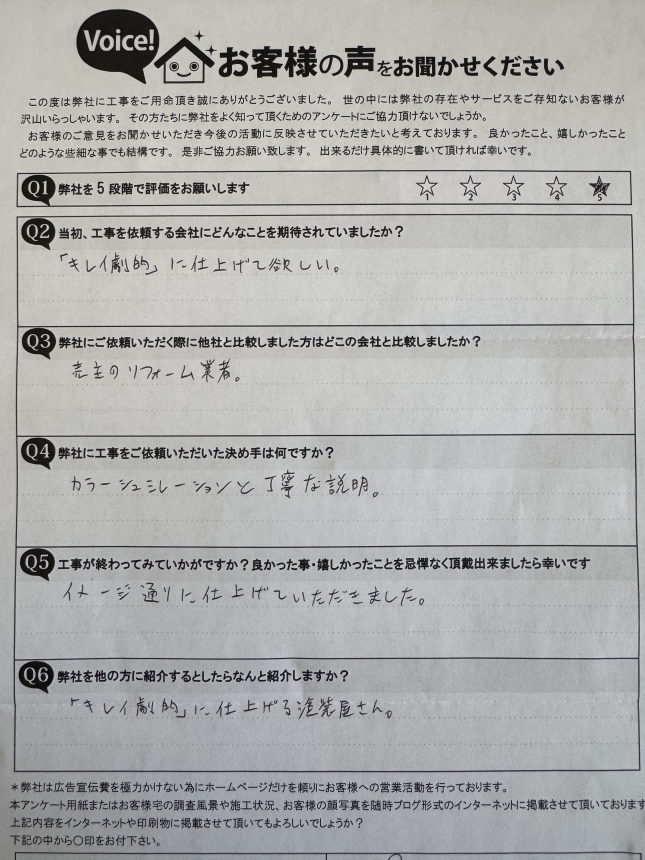 Voice!
お客様の声をお聞かせください
この度は弊社に工事をご用命頂き誠にありがとうございました。 世の中には弊社の存在やサービスをご存知ないお客様が
沢山いらっしゃいます。 その方たちに弊社をよく知って頂くためのアンケートにご協力頂けないでしょうか。
お客様のご意見をお聞かせいただき今後の活動に反映させていただきたいと考えております。 良かったこと、嬉しかったこと
どのような些細な事でも結構です。 是非ご協力お願い致します。 出来るだけ具体的に書いて頂ければ幸いです。
Q1 弊社を5段階で評価をお願いします
1 2 3 4 5
Q2 当初、工事を依頼する会社にどんなことを期待されていましたか？
「キレイ劇的」に仕上げて欲しい。
Q3 弊社にご依頼いただく際に他社と比較しました方はどこの会社と比較しましたか？
売主のリフォーム業者。
Q4 弊社に工事をご依頼いただいた決め手は何ですか？
カラーシュミレーションと丁寧な説明。
Q5 工事が終わってみていかがですか？良かった事・嬉しかったことを忌憚なく頂戴出来ましたら幸いです
イメージ通りに仕上げていただきました。
Q6 弊社を他の方に紹介するとしたらなんと紹介しますか？
「キレイ劇的」に仕上げる塗装屋さん。
＊弊社は広告宣伝費を極力かけない為にホームページだけを頼りにお客様への営業活動を行っております。
本アンケート用紙またはお客様宅の調査風景や施工状況、お客様の顔写真を随時ブログ形式のインターネットに掲載させて頂いております
上記内容をインターネットや印刷物に掲載させて頂いてもよろしいでしょうか？
下記の中から〇印をお付下さい。